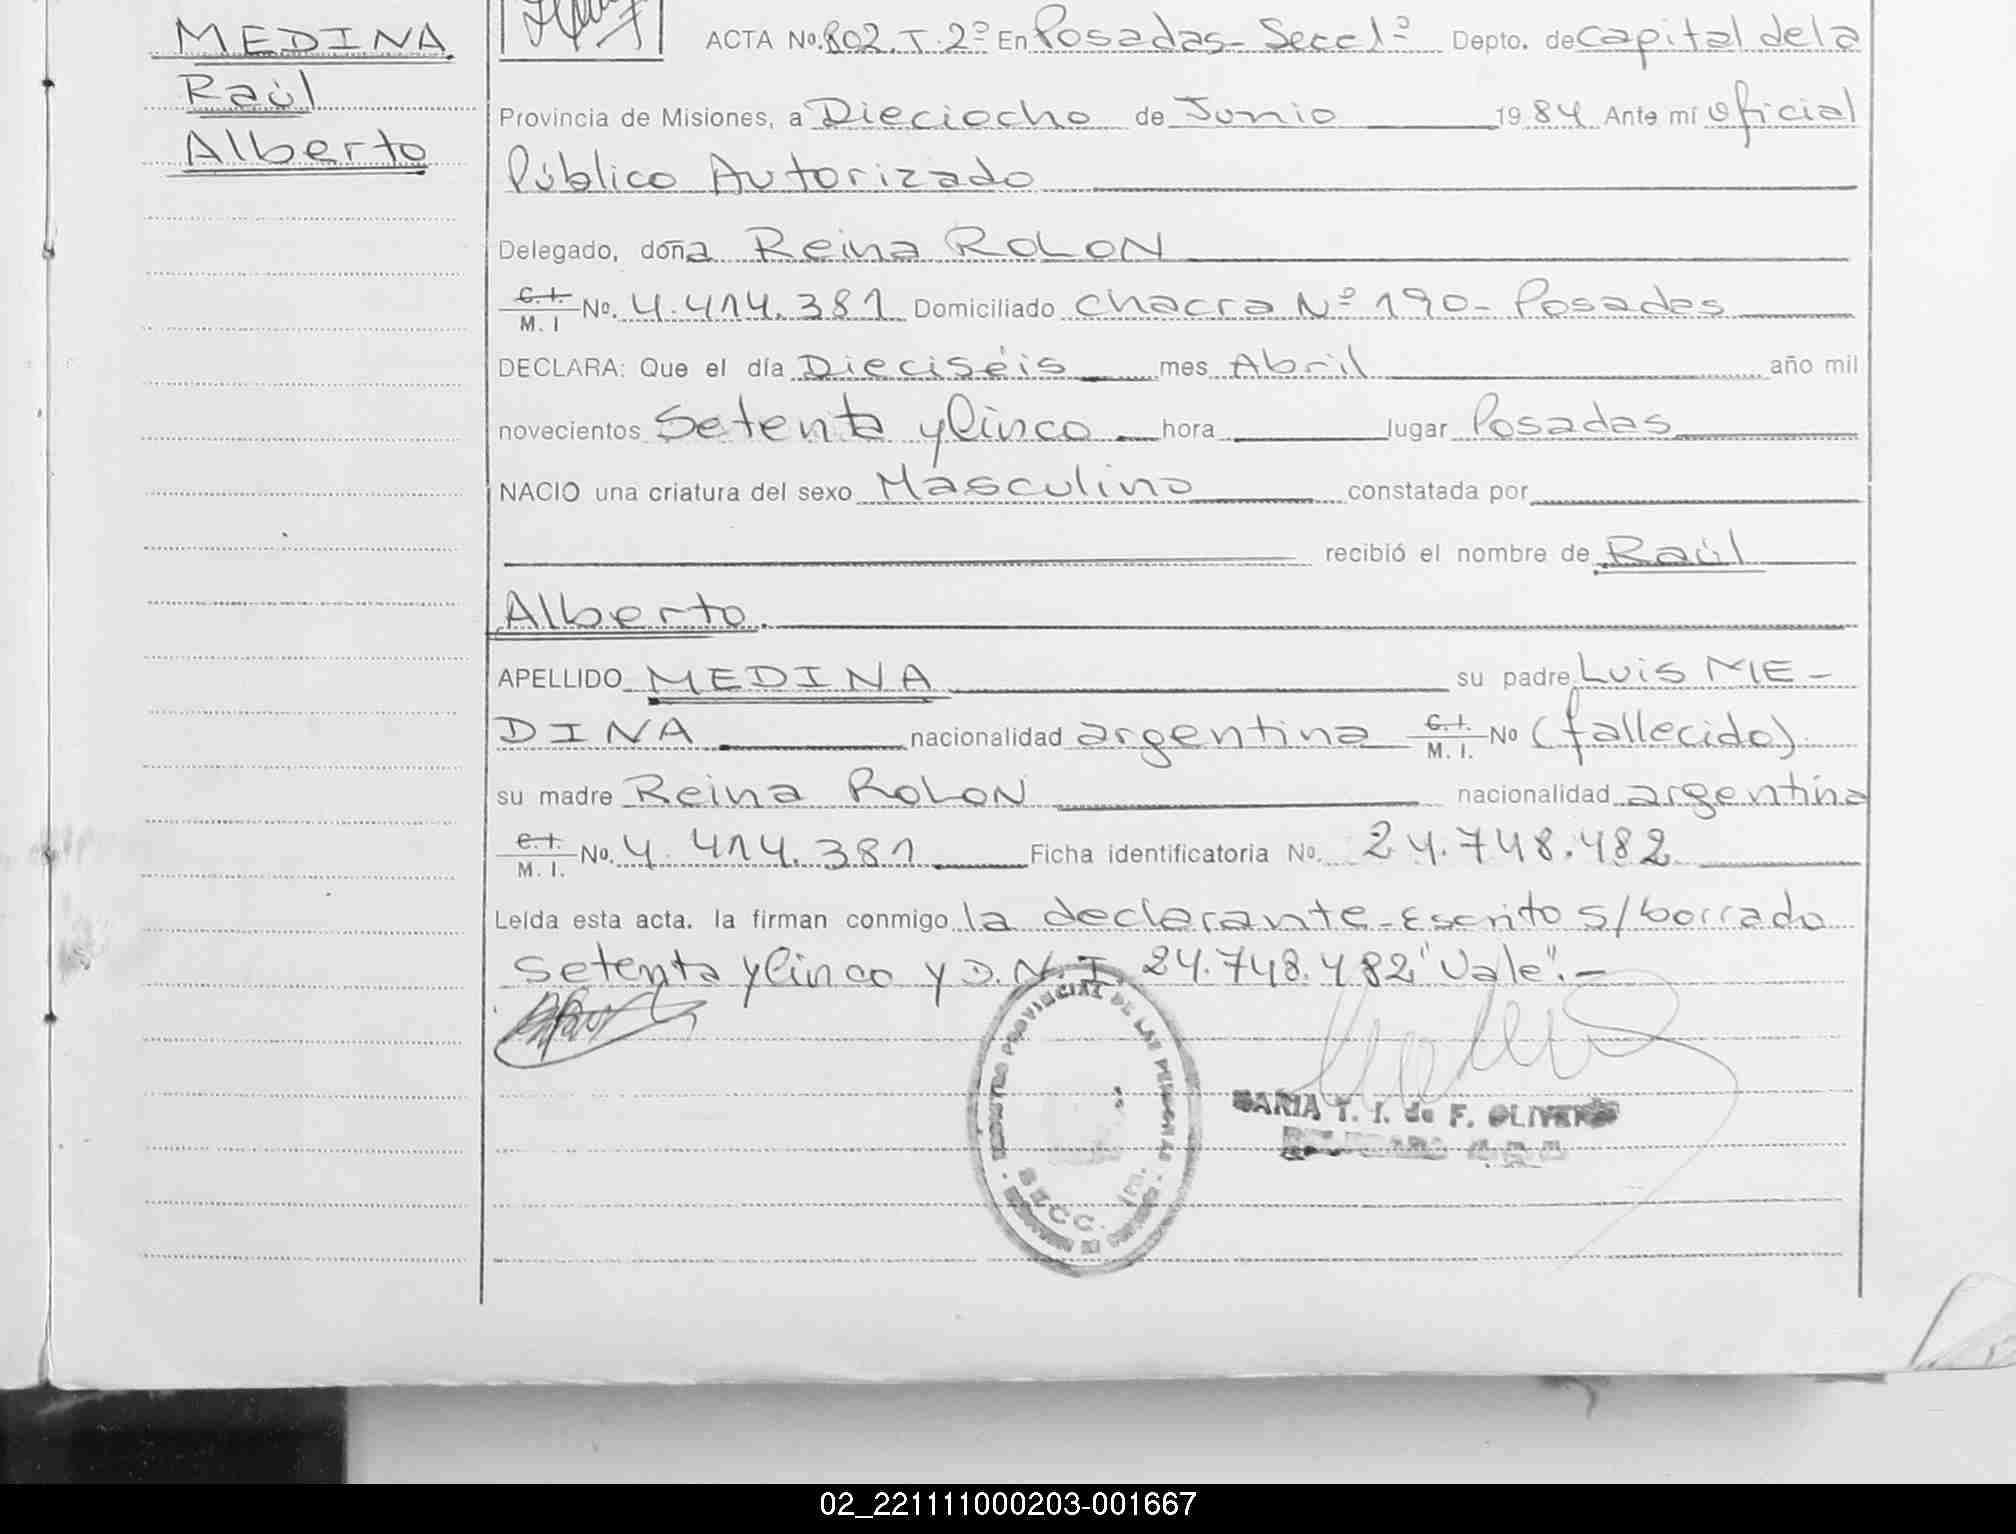 MEDINA
Raúl
Alberto
ACTA No. 802. T. 2º En Posadas - Secc 1ª Depto. de capital de la
Provincia de Misiones, a Dieciocho de Junio 1984 Ante mí oficial
Público Autorizado
Delegado, doña Reina ROLON
C.I. / M.I No. 4.414.381 Domiciliado Chacra Nº 190 - Posadas
DECLARA: Que el día Dieciséis mes Abril año mil
novecientos Setenta y Cinco hora lugar Posadas
NACIO una criatura del sexo Masculino constatada por
recibió el nombre de Raúl
Alberto.
APELLIDO MEDINA su padre Luis ME-
DINA nacionalidad argentina C.I. / M.I. No (fallecido).
su madre Reina ROLON nacionalidad argentina
C.I. / M.I. No. 4.414.381 Ficha identificatoria No. 24.748.482
Leída esta acta. la firman conmigo la declarante - Escrito s/borrado
Setenta y Cinco y D.N.I. 24.748.482 "Vale". -
REGISTRO PROVINCIAL DE LAS PERSONAS
SECC. 1ra.
MARIA T. I. de F. OLIVERES
02_221111000203-001667